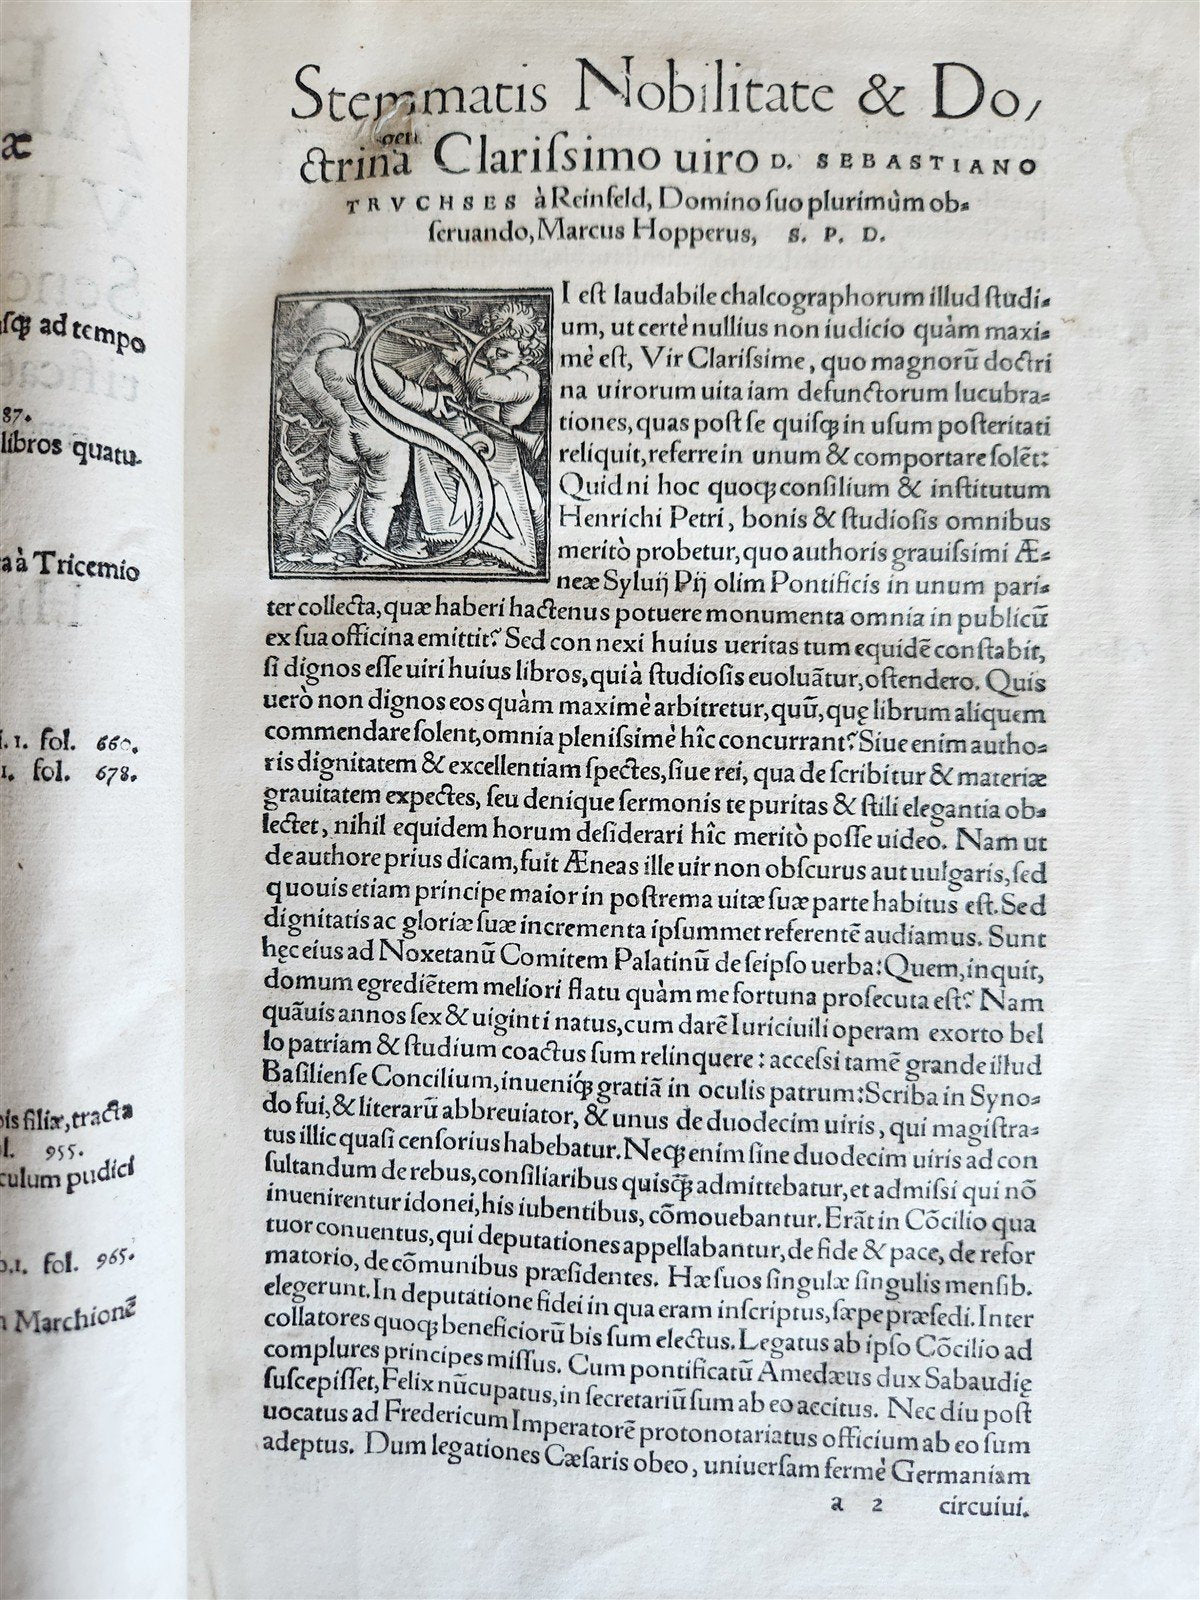 æ
usq3 ad tempo
87.
libros quatu-
a à Tricemio
l. 1. fol. 660.
1. fol. 678.
ois filiæ, tracta
l. 955.
culum pudici
b.1. fol. 965.
n Marchionē
Stemmatis Nobilitate & Do,
ctrina Clariſsimo uiro D. SEBASTIANO
TRVCHSES à Reinfeld, Domino ſuo plurimùm ob-
ſeruando, Marcus Hopperus, S. P. D.
SI eſt laudabile chalcographorum illud ſtudi-
um, ut certè nullius non iudicio quàm maxi-
mè eſt, Vir Clariſsime, quo magnorū doctri
na uirorum uita iam defunctorum lucubra-
tiones, quas poſt ſe quiſq3 in uſum poſteritati
reliquit, referre in unum & comportare ſolēt:
Quid ni hoc quoq3 conſilium & inſtitutum
Henrichi Petri, bonis & ſtudioſis omnibus
meritò probetur, quo authoris grauiſsimi Æ-
neæ Syluij Pij olim Pontificis in unum pari-
ter collecta, quæ haberi hactenus potuere monumenta omnia in publicū
ex ſua officina emittit? Sed con nexi huius ueritas tum equidē conſtabit,
ſi dignos eſſe uiri huius libros, qui à ſtudioſis euoluātur, oſtendero. Quis
uerò non dignos eos quàm maximè arbitretur, quū, quę librum aliquem
commendare ſolent, omnia pleniſsimè hîc concurrant? Siue enim autho-
ris dignitatem & excellentiam ſpectes, ſiue rei, qua de ſcribitur & materiæ
grauitatem expectes, ſeu denique ſermonis te puritas & ſtili elegantia ob-
lectet, nihil equidem horum deſiderari hîc meritò poſſe uideo. Nam ut
de authore prius dicam, fuit Æneas ille uir non obſcurus aut uulgaris, ſed
quouis etiam principe maior in poſtrema uitæ ſuæ parte habitus eſt. Sed
dignitatis ac gloriæ ſuæ incrementa ipſummet referentē audiamus. Sunt
hęc eius ad Noxetanū Comitem Palatinū de ſeipſo uerba: Quem, inquit,
domum egrediētem meliori flatu quàm me fortuna proſecuta eſt? Nam
quāuis annos ſex & uiginti natus, cum darē Iuri ciuili operam exorto bel
lo patriam & ſtudium coactus ſum relinquere: acceſsi tamē grande illud
Baſilienſe Concilium, inueniq3 gratiā in oculis patrum: Scriba in Syno-
do fui, & literarū abbreuiator, & unus de duodecim uiris, qui magiſtra-
tus illic quaſi cenſorius habebatur. Neq3 enim ſine duodecim uiris ad con
ſultandum de rebus, conſiliaribus quiſq̃3 admittebatur, et admiſsi qui nō
inuenirentur idonei, his iubentibus, cōmouebantur. Erāt in Cōcilio qua
tuor conuentus, qui deputationes appellabantur, de fide & pace, de refor
matorio, de cōmunibus præſidentes. Hæ ſuos ſingulæ ſingulis menſib.
elegerunt. In deputatione fidei in qua eram inſcriptus, ſæpe præſedi. Inter
collatores quoq3 beneficiorū bis ſum electus. Legatus ab ipſo Cōcilio ad
complures principes miſſus. Cum pontificatū Amedæus dux Sabaudię
ſuſcepiſſet, Felix nūcupatus, in ſecretariū ſum ab eo accitus. Nec diu poſt
uocatus ad Fredericum Imperatorē protonotariatus officium ab eo ſum
adeptus. Dum legationes Cæſaris obeo, uniuerſam fermè Germaniam
a 2 circuiui.